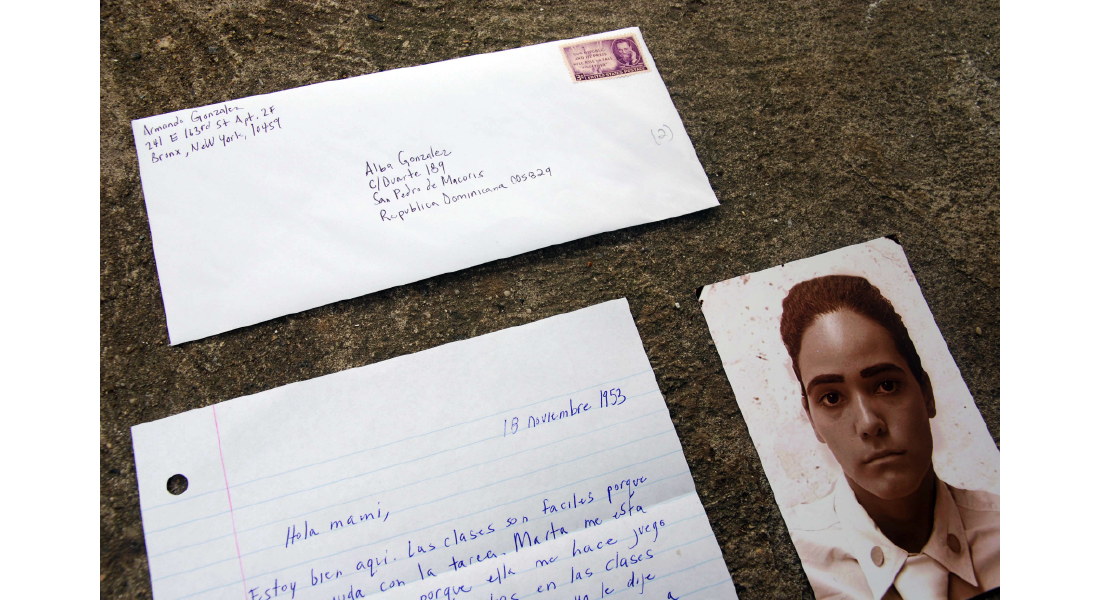 Armando Gonzalez
241 E 163rd St Apt. 2F
Bronx, New York, 10459
Alba Gonzalez
C/Duarte 189
San Pedro de Macoris
Republica Dominicana
(2)
3¢ UNITED STATES POSTAGE
18 noviembre 1953
Hola mami,
Estoy bien aquí. Las clases son faciles porque
con la tarea. Marta me está
porque ella me hace juego
en las clases
le dije
a